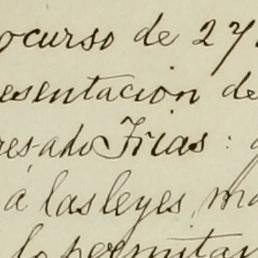 ocurso de 27
esentacion de
resado Frias:
á las leyes, ma
lo permitan